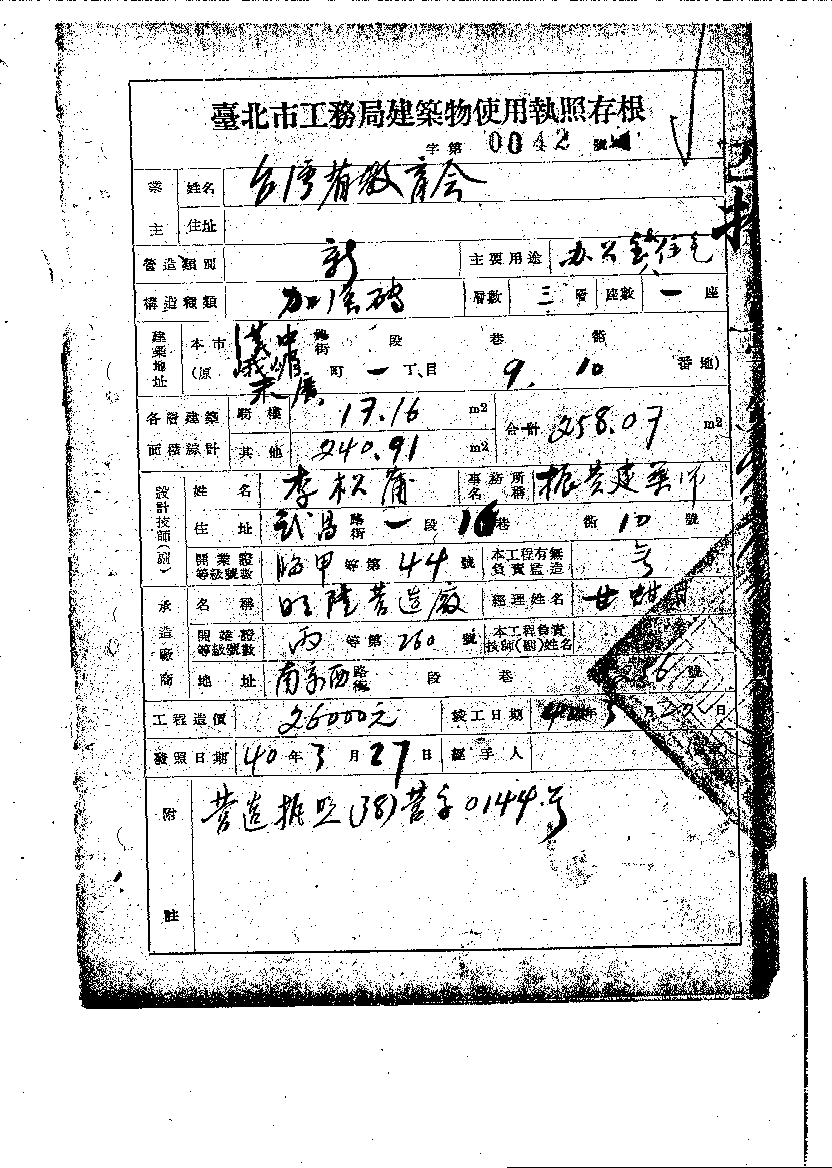 臺北市工務局建築物使用執照存根
字第 0042 號
業主 姓名 台湾省教育会
住址
營造類別 新 主要用途 办公室住宅
構造種類 加强磚 層數 三層 座數 一座
建築地址 本市 漢中 路街 段 巷 衖
(原 末廣 町 一丁目 9. 10 番地)
各層建築面積綜計 騎樓 17.16 m2 合計 258.07 m2
其他 240.91 m2
設計技師(副) 姓名 李松蒲 事務所名稱 振芸建築师
住址 武昌 路街 一段 16巷 衖 10 號
開業證等級號數 臨甲等第 44 號 本工程有無負責監造
承造廠商 名稱 旺陸营造廠 經理姓名 甘
開業證等級號數 丙等第 260 號 本工程負責技師(副)姓名
地址 南京西路街 段 巷 56 號
工程造價 26000元 竣工日期 40年3月20日
發照日期 40年3月27日 經手人
附註 营造执照(38)营字0144号